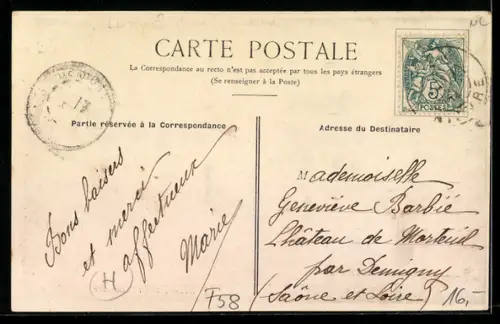 CARTE POSTALE
La Correspondance au recto n'est pas acceptée par tous les pays étrangers
(Se renseigner à la Poste)
5
POSTES
Partie réservée à la Correspondance
Adresse du Destinataire
Bons baisers
et merci
affectueux
Marie
H
F58
Mademoiselle
Geneviève Barbié
Château de Morteuil
par Demigny
(Saône et Loire)
16,-